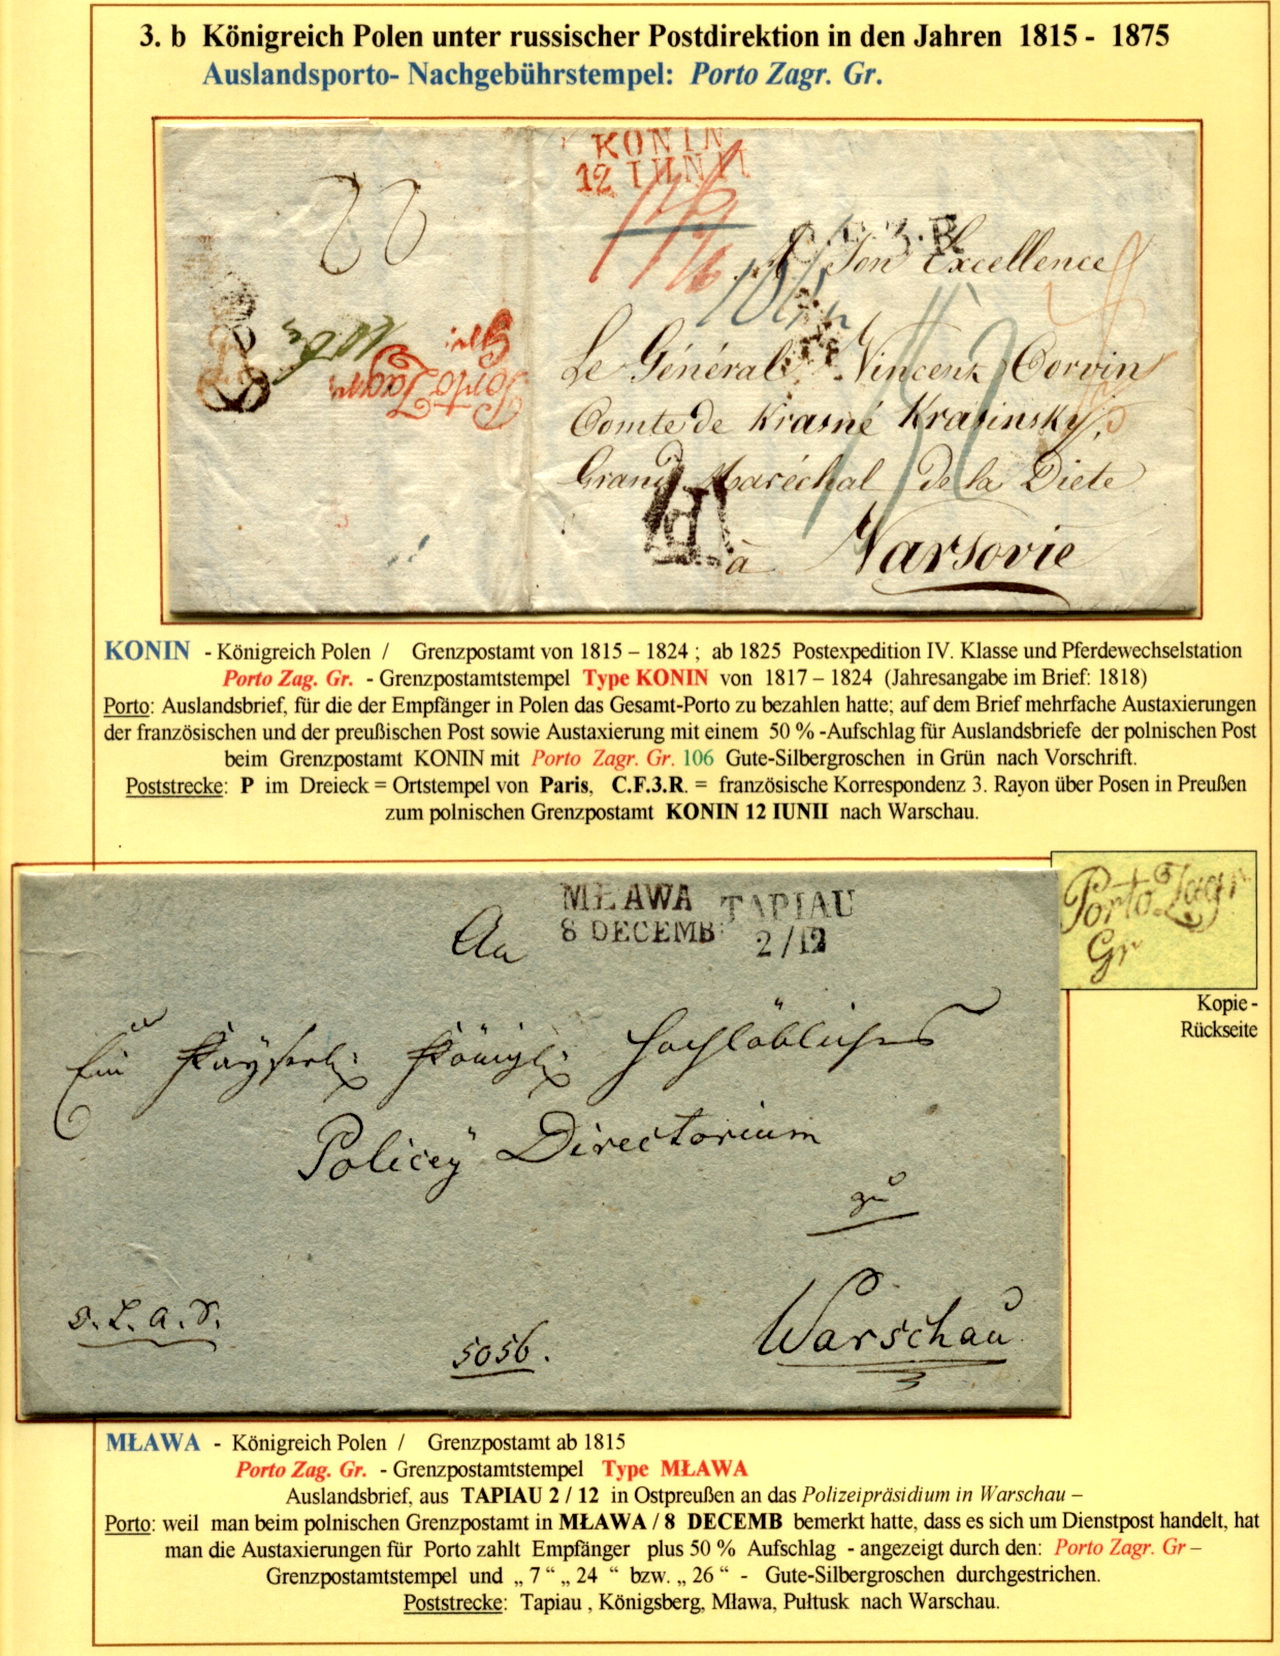 3. b Königreich Polen unter russischer Postdirektion in den Jahren 1815 - 1875
Auslandsporto- Nachgebührstempel: Porto Zagr. Gr.
KONIN
12 IUNII
C.F.3.R
A Son Excellence
Le Général Vincent Corvin
Comte de Krasné Krasinsky,
Grand Maréchal de la Diete
à Varsovie
P
Porto Zagr.
Gr.
106
KONIN - Königreich Polen / Grenzpostamt von 1815 – 1824 ; ab 1825 Postexpedition IV. Klasse und Pferdewechselstation
Porto Zag. Gr. - Grenzpostamtstempel Type KONIN von 1817 – 1824 (Jahresangabe im Brief: 1818)
Porto: Auslandsbrief, für die der Empfänger in Polen das Gesamt-Porto zu bezahlen hatte; auf dem Brief mehrfache Austaxierungen
der französischen und der preußischen Post sowie Austaxierung mit einem 50 % -Aufschlag für Auslandsbriefe der polnischen Post
beim Grenzpostamt KONIN mit Porto Zagr. Gr. 106 Gute-Silbergroschen in Grün nach Vorschrift.
Poststrecke: P im Dreieck = Ortstempel von Paris, C.F.3.R. = französische Korrespondenz 3. Rayon über Posen in Preußen
zum polnischen Grenzpostamt KONIN 12 IUNII nach Warschau.
MŁAWA
8 DECEMB:
TAPIAU
2 / 12
Porto Zagr
Gr
Kopie -
Rückseite
An
Ein Kayserl: Königl: Hochlöbliches
Policey Directorium
zu
Warschau
5056.
MŁAWA - Königreich Polen / Grenzpostamt ab 1815
Porto Zag. Gr. - Grenzpostamtstempel Type MŁAWA
Auslandsbrief, aus TAPIAU 2 / 12 in Ostpreußen an das Polizeipräsidium in Warschau –
Porto: weil man beim polnischen Grenzpostamt in MŁAWA / 8 DECEMB bemerkt hatte, dass es sich um Dienstpost handelt, hat
man die Austaxierungen für Porto zahlt Empfänger plus 50 % Aufschlag - angezeigt durch den: Porto Zagr. Gr –
Grenzpostamtstempel und „ 7 “ „ 24 “ bzw. „ 26 “ - Gute-Silbergroschen durchgestrichen.
Poststrecke: Tapiau , Königsberg, Mława, Pułtusk nach Warschau.